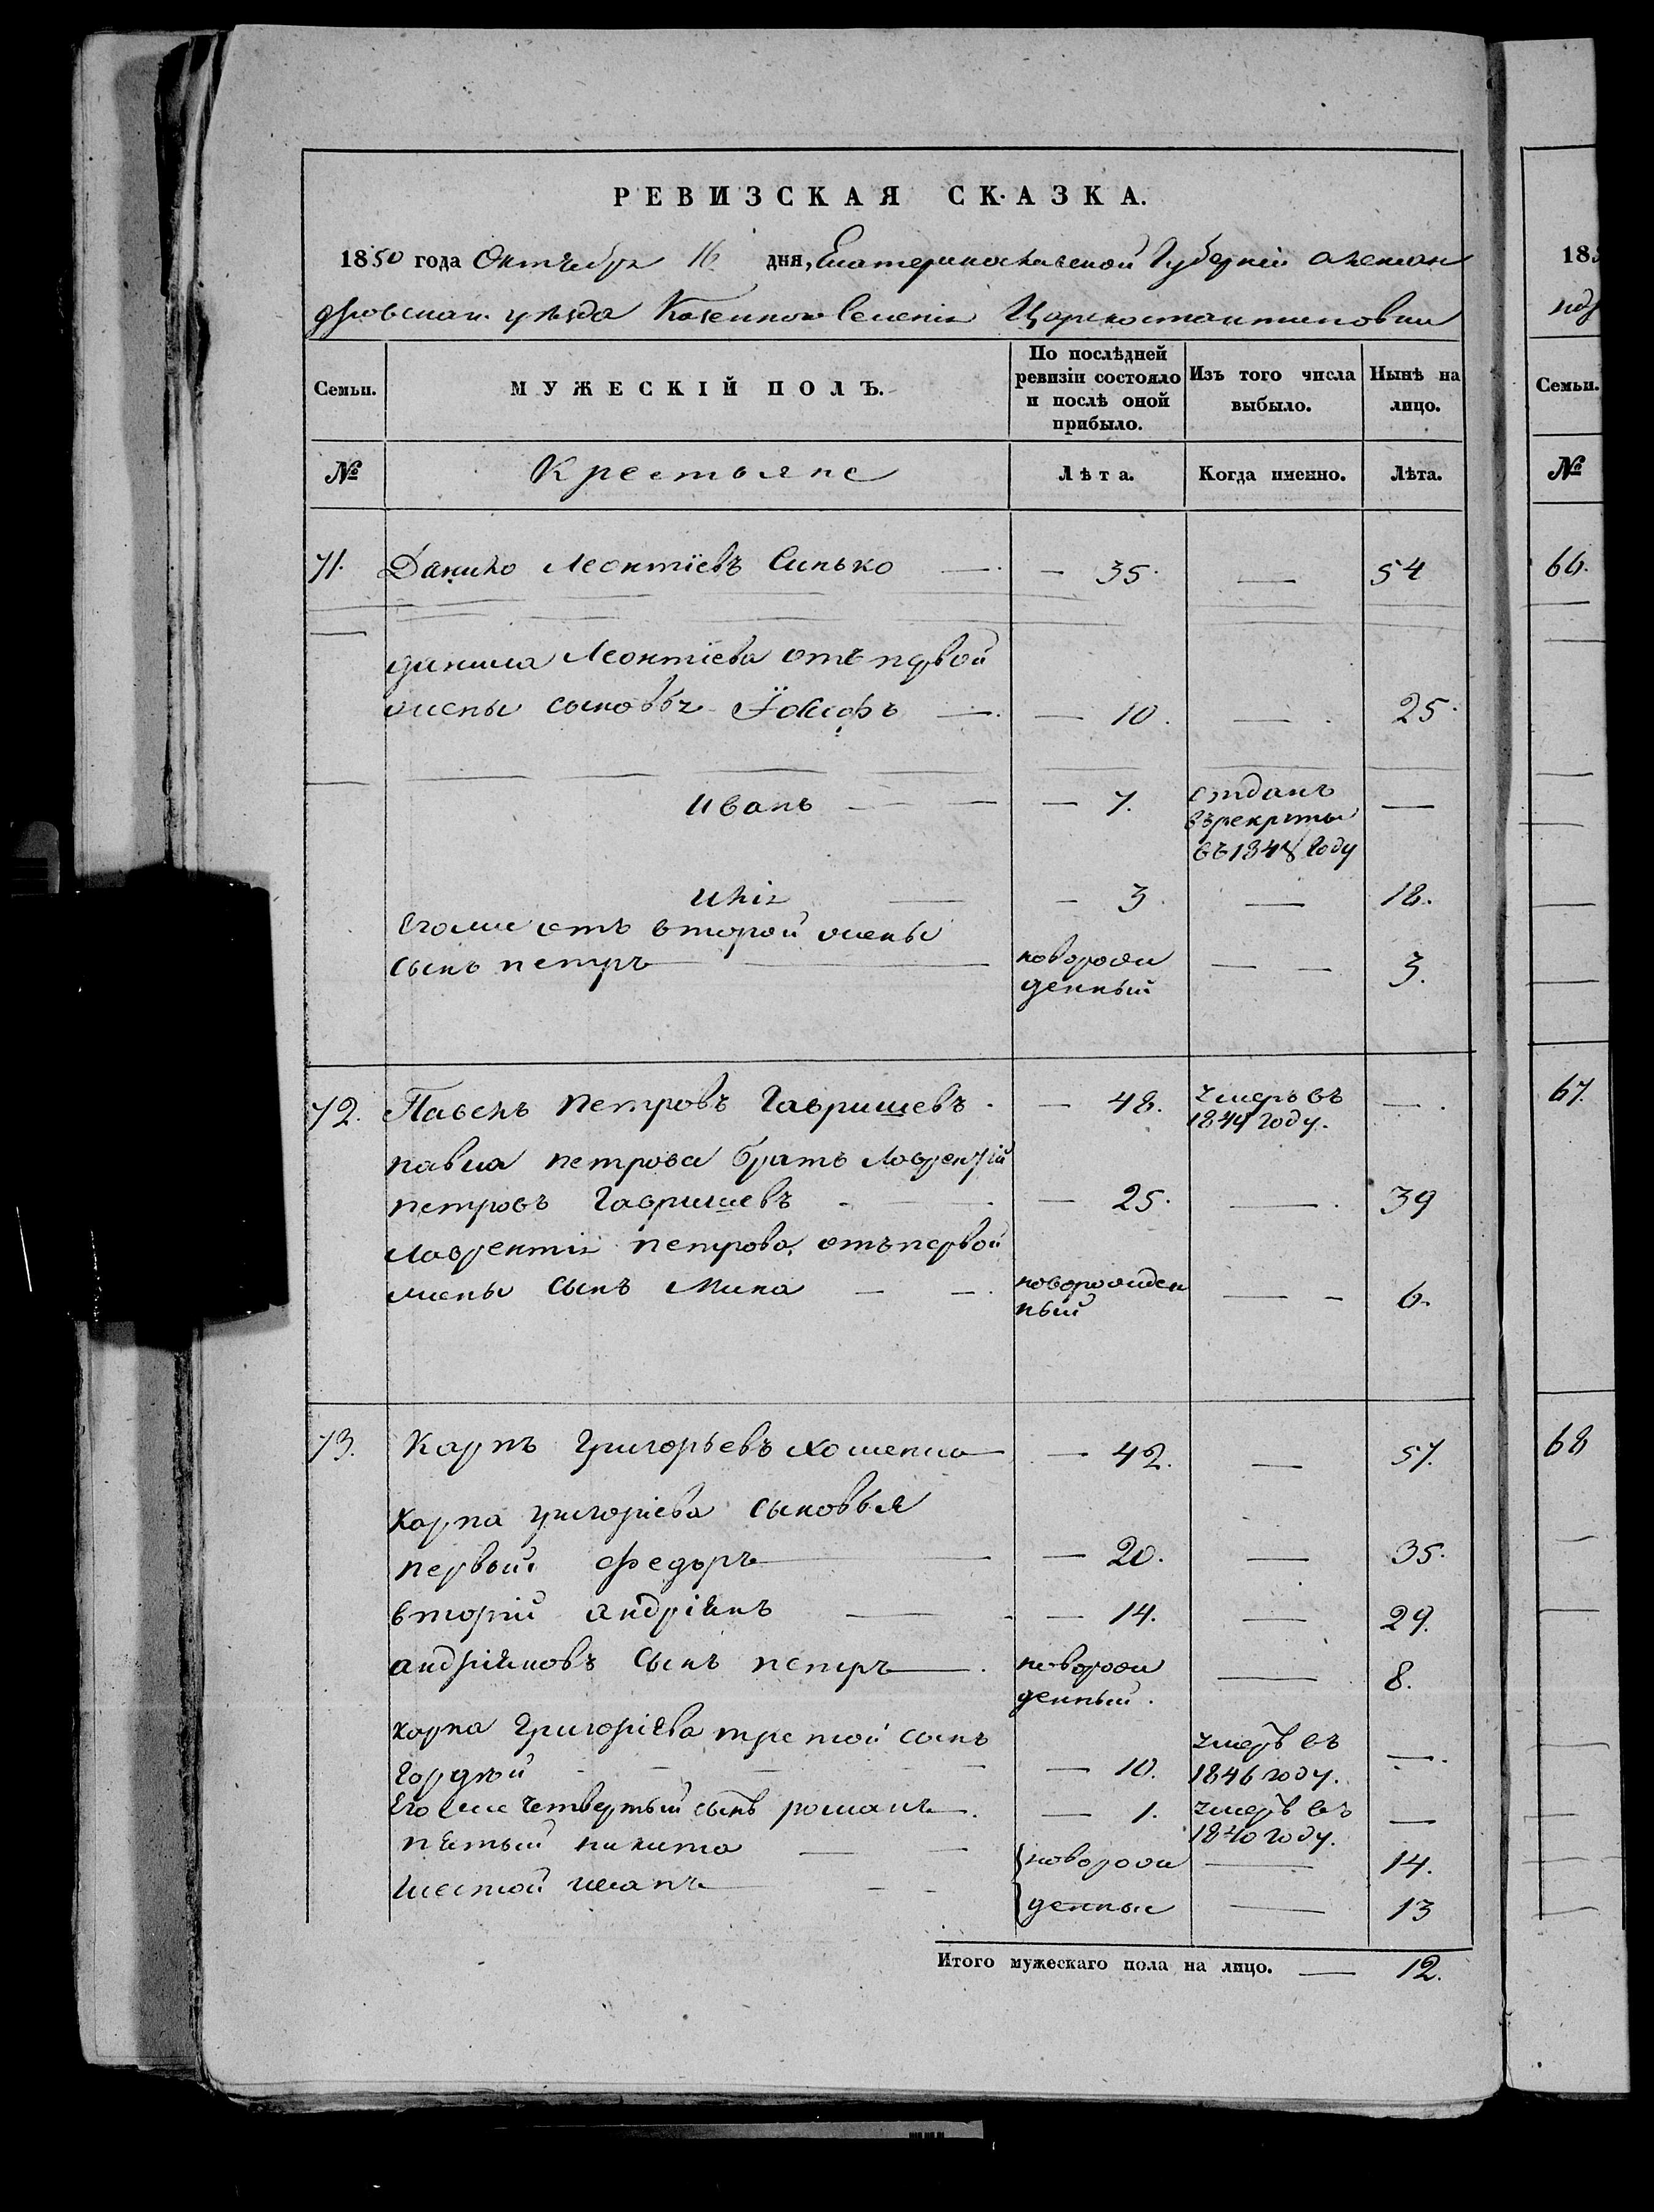 РЕВИЗСКАЯ СКАЗКА.
1850 года Октября 16 дня, Екатеринославской Губерніи Алексан
дровскаго уѣзда Казеннаго Селенія Царекостантиновки
Семьи. МУЖЕСКІЙ ПОЛЪ. По послѣдней ревизіи состояло и послѣ оной прибыло. Изъ того числа выбыло. Нынѣ на лицо.
№ Крестьяне Лѣта. Когда именно. Лѣта.
71. Данило Леонтіевъ Синько — 35. — 54
данила Леонтіева отъ первой
жены сыновья Іосифъ — 10. — 25.
Иванъ — 7. отданъ въ рекруты въ 1848 году —
Илія — 3. — 18.
Егоже отъ второй жены
сынъ петръ новорож денный — 3.
72. Павелъ петровъ Гавришевъ — 48. умеръ въ 1844 году. —
павла петрова братъ Лаврентій
петровъ Гавришевъ — 25. — 39
Лаврентія петрова отъ первой
жены сынъ Мина новорожден ный — 6.
73. Карпъ Григорьевъ Хоменко — 42. — 57.
Карпа григоріева сыновья
первый федоръ — 20. — 35.
вторій андріянъ — 14. — 29.
андріяновъ сынъ петръ новорож денный. — 8.
карпа Григоріева третой сынъ
Гордѣй — 10. умеръ въ 1846 году. —
Его же четвертый сынъ романъ — 1. умеръ въ 1840 году. —
пятый никита новорож — 14.
шестой иванъ денные — 13
Итого мужескаго пола на лицо. — 12.
185
№
Семьи.
66.
67.
68